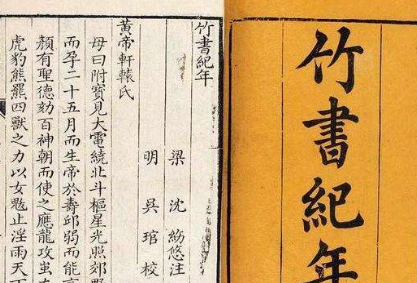 竹書紀年
竹書紀年
梁 沈 約 悠 注
明 吳 琯 校
黄帝軒轅氏
母曰附寶見大電繞北斗樞星光照郊野
而孕二十五月而生帝於壽邱弱而能言
顏有聖德劾百神朝而使之應龍攻蚩尤
虎豹熊羆四獸之力以女魃止淫雨天下